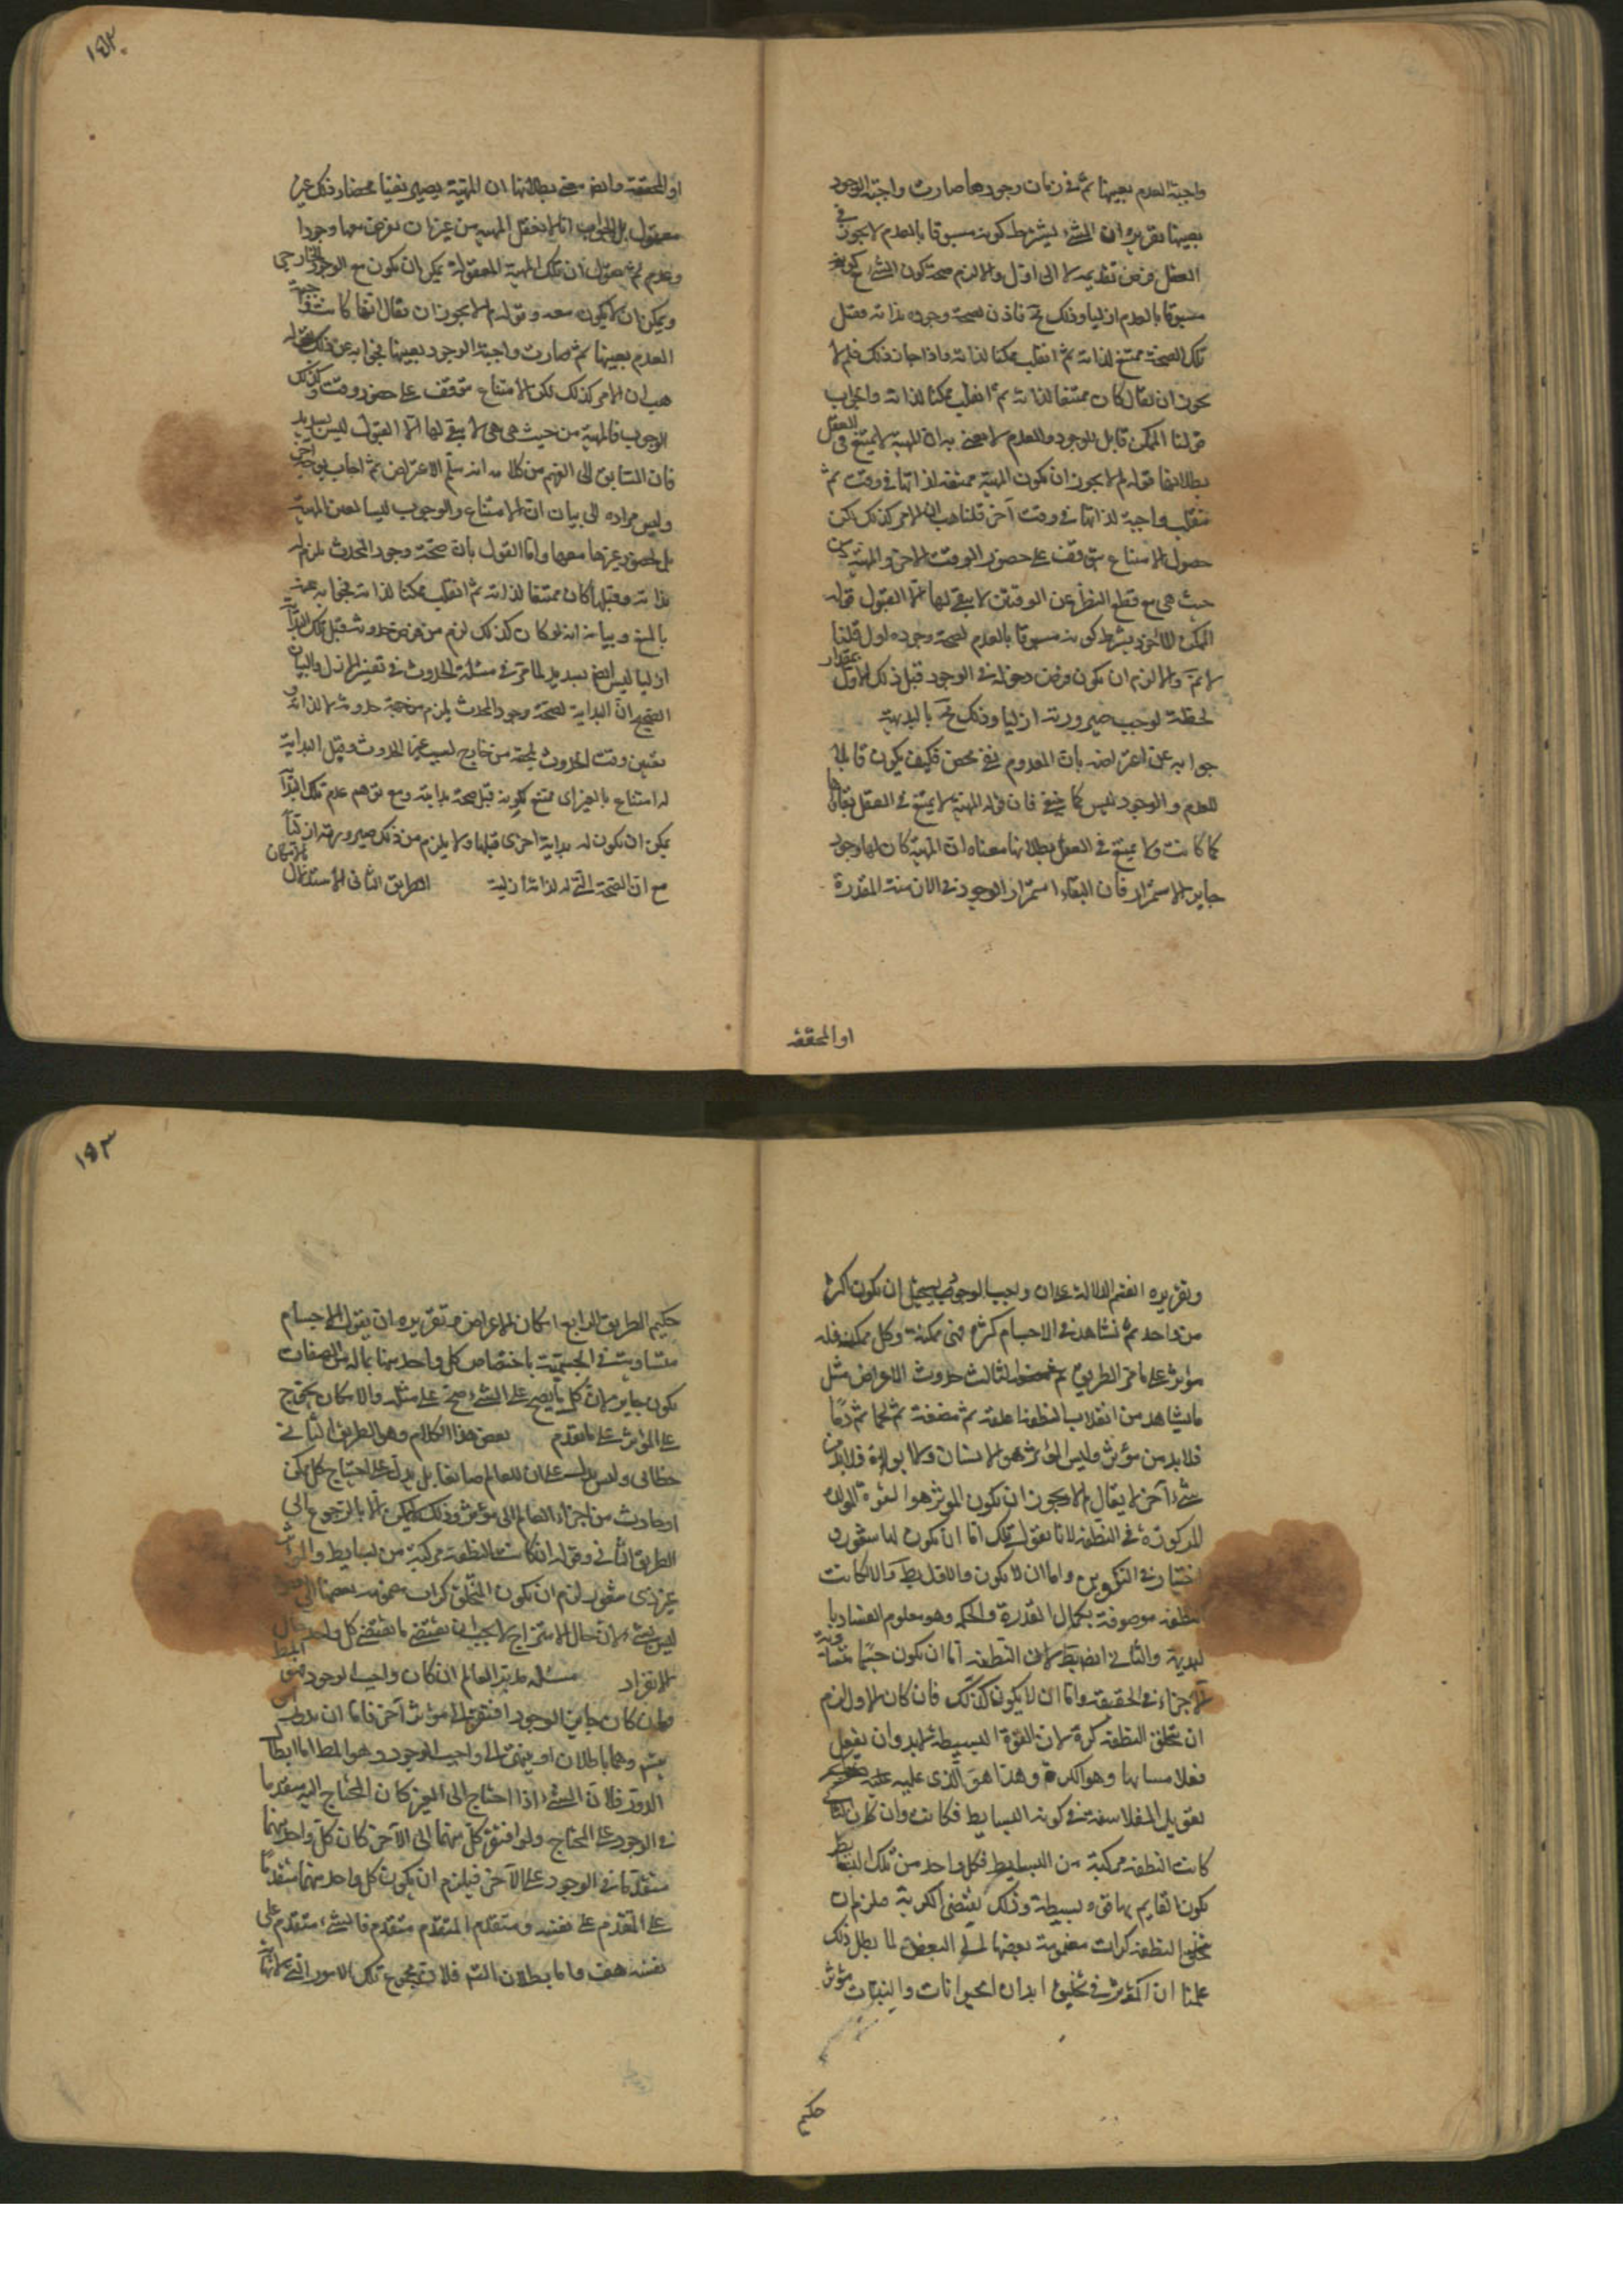 واجبة العدم بعينها ثم فى زمان وجودها صارت واجبة الوجود
بعينها تقريره ان الشىء بشرط كونه مسبوقا بالعدم لا يجوز فى
العقل فرض تقديمه لا الى اول والا لزم صحة كون الشىء مع كونه
مسبوقا بالعدم ازليا وذلك مح فاذن لصحة وجوده بداية وقبل
تلك الصحة ممتنع لذاته ثم انقلب ممكنا لذاته واذا جاز ذلك فلم لا
يجوز ان يقال كان ممتنعا لذاته ثم انقلب ممكنا لذاته والجواب
قولنا الممكن قابل للوجود والعدم لا معنى به ان المهية لا يمتنع فى العقل
بطلانها قوله لم لا يجوز ان تكون المهية ممتنعة لذاتها فى وقت ثم
تنقلب واجبة لذاتها فى وقت آخر قلنا هب ان الامر كذلك لكن
حصول الامتناع يتوقف على حضور الوقت الاخر والمهية من
حيث هى مع قطع النظر عن الوقتين لا يبقى لها الا القبول قوله
الممكن الماخوذ بشرط كونه مسبوقا بالعدم لصحة وجوده اول قلنا
لا نم والا لزم ان يكون فرض دخوله فى الوجود قبل ذلك الاول بمقدار
لحظة لوجب صيرورته ازليا وذلك مح بالبديهة
جوابه عن اعتراضه بان المعدوم نفى محض فكيف يكون قابلا
للعدم والوجود ليس كما ينبغى فان قوله المهية لا يمتنع فى العقل بقاؤها
كما كانت ولا يمتنع فى العقل بطلانها معناه ان المهية كان لها وجود
جايز الاستمرار فان البقاء استمرار الوجود فى الازمنة المقدرة
او المحققة
١٥٢
او المحققة وايضا معنى بطلانها ان المهية يصير نفيا محضا وذلك غير
معقول بل الجواب انا لا نعقل المهية من غير ان نفرض معها وجودا
وعدم ثم نقول ان تلك المهية المعقولة يمكن ان يكون مع الوجود الخارجى
ويمكن ان لا يكون معه وقوله لم لا يجوز ان يقال انها كانت واجبة
العدم بعينها ثم صارت واجبة الوجود بعينها فجوابه عن ذلك بقوله
هب ان الامر كذلك لكن الامتناع يتوقف على حضور وقت وكذلك
الوجوب فالمهية من حيث هى هى لا يبقى لها الا القبول ليس بسديد
فان السابق الى الفهم من كلامه انه سلم الاعتراض ثم اجاب بوجه اخر
وليس مراده الى بيان ان الامتناع والوجوب ليسا لعين المهية
بل لحضور غيرها معها واما القول بان صحة وجود المحدث يلزم له
بداية وقبلها كان ممتنعا لذاته ثم انقلب ممكنا لذاته فجوابه عنه
بالمنع وبيانه انه لو كان كذلك لزم من فرض حدوثه قبل تلك البداية
ازليا ليس ايضا بسديد لما مر فى مسئلة الحدوث فى تفسير الازل والبيان
الصحيح ان البداية لصحة وجود المحدث يلزم من جهة حدوثه لا لذاته و
تعيين وقت الحدوث يلحقه من خارج لسبب غير الحدوث وقبل البداية
له امتناع بالغير اى ممتنع كونه قبل صحة بدايته ومع توهم عدم تلك البداية
يمكن ان يكون له بداية اخرى قبلها ولا يلزم من ذلك صيرورته ازليا
مع ان الصحة التى له لذاته ازلية الطريق الثانى الاستدلال بالامكان
وتقريره انعم الدلالة على ان واجب الوجود يستحيل ان يكون اكثر
من واحد ثم نشاهد فى الاجسام كثرة فهى ممكنة وكل ممكن فله
مؤثر على ما مر الطريق الثالث حدوث الاعراض مثل
ما يشاهد من انقلاب النطفة علقة ثم مضغة ثم لحما ثم دما
فلا بد من مؤثر وليس المؤثر هو الانسان ولا ابواه فلا بد من
شىء آخر لا يقال لم لا يجوز ان يكون المؤثر هو القوة المولدة
المركوزة فى النطفة لانا نقول تلك اما ان يكون لها شعور و
اختيار فى التكوين واما ان لا يكون والاول بط والا لكانت
النطفة موصوفة بكمال القدرة والحكمة وهو معلوم الفساد با
لبديهة والثانى ايضا بط لان النطفة اما ان يكون جسما متشابه
الاجزاء فى الحقيقة واما ان لا يكون كذلك فان كان الاول لزم
ان يتخلق النطفة كرة لان القوة البسيطة لا بد وان يفعل
فعلا متشابها وهو الكرة وهذا هو الذى عليه
تعويل الفلاسفة فى كونه البسايط فكانت وان كان الثانى
كانت النطفة مركبة من البسايط فكل واحد من تلك البسايط
يكون القايم بها قوة بسيطة وذلك يقتضى الكرية فلزم ان
يتخلق النطفة كرات مضمومة بعضها الى البعض لما بطل ذلك
علمنا ان المؤثر فى تخليق ابدان الحيوانات والنبات مؤثر
حكيم
١٥٣
حكيم الطريق الرابع امكان الاعراض وتقريره ان يقول الاجسام
متساوية فى الجسمية باختصاص كل واحد منها بما له من الصفات
يكون جايزا لان كل ما يصح على الشىء صح على مثله والامكان يحوج
على المؤثر على ما تقدم بعض هذا الكلام وهو الطريق الثانى
خطابى وليس يدل على ان للعالم صانعا بل يدل على احتياج كل ممكن
او حادث من اجزاء العالم الى مؤثر وذلك لا يمكن الا بالرجوع الى
الطريق الثانى وقوله ان كانت النطفة مركبة من بسايط والمؤثر
غير ذى شعور لزم ان يكون المتخلق كرات مضمومة بعضها الى بعض
ليس بشىء لان حال الامتزاج لا يجب ان يقتضى ما يقتضى كل واحد حال
الانفراد مسئلة مدبر العالم ان كان واجب الوجود فهو المط
وان كان جايز الوجود افتقر الى مؤثر آخر فاما ان يدور او
يتس وهما باطلان او ينتهى الى واجب الوجود وهو المط اما ابطال
الدور فلان الشىء اذا احتاج الى الغير كان المحتاج اليه متقدما
فى الوجود على المحتاج ولو افتقر كل منهما الى الآخر كان كل واحد منهما
متقدما فى الوجود على الآخر فيلزم ان يكون كل واحد منهما متقدما
على المتقدم على نفسه ومتقدم المتقدم متقدم فالشىء متقدم على
نفسه هف واما بطلان التس فلان مجموع تلك الامور التى لا نهاية